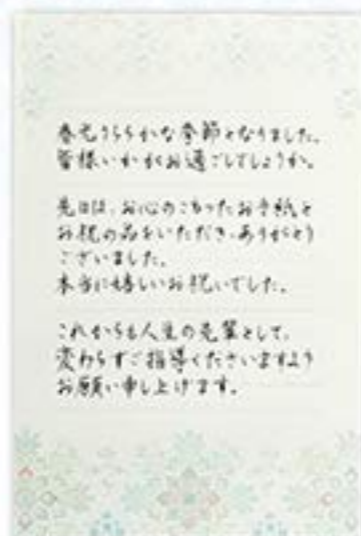 春光うららかな季節となりました。
皆様いかがお過ごしでしょうか。
先日は、お心のこもったお手紙と
お祝の品をいただき、ありがとう
ございました。
本当に嬉しいお祝いでした。
これからも人生の先輩として、
変わらずご指導くださいますよう
お願い申し上げます。